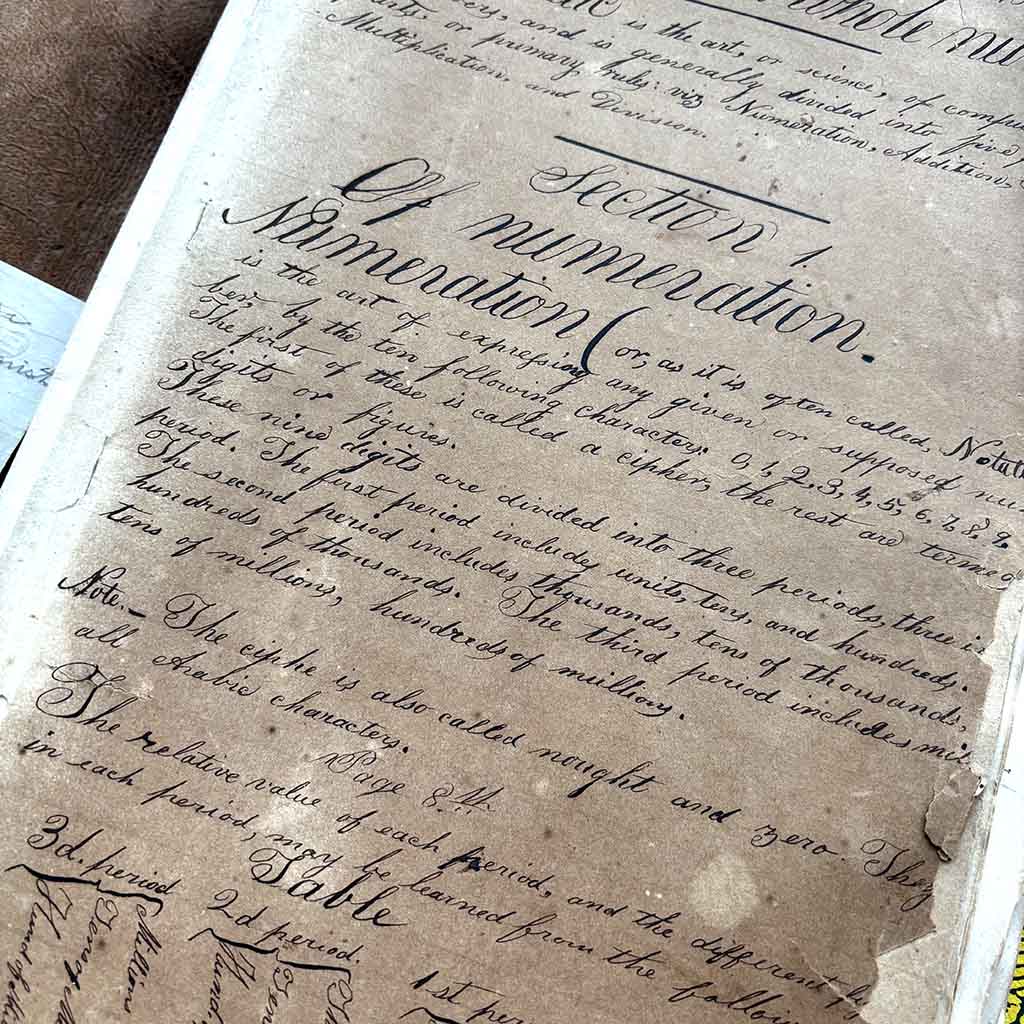 whole nu
is the art, or science, of compu
and is generally divided into five
parts, or primary rules: viz Numeration, Addition,
Multiplication. and Division.
Section 1.
Of numeration.
Numeration (or, as it is often called, Notati
is the art of expressing any given or supposed num
ber, by the ten following characters. 0, 1, 2, 3, 4, 5, 6, 7, 8, 9.
The first of these is called a cipher, the rest are termed
digits or figures.
These nine digits are divided into three periods, three i
period. The first period includes units, tens, and hundreds.
The second period includes thousands, tens of thousands,
hundreds of thousands. The third period includes mil
tens of millions, hundreds of millions.
Note.— The ciphe is also called nought and zero. They
all Arabic characters.
Page 8.th
The relative value of each period, and the different
in each period, may be learned from the follow
Table
3d. period
2d period.
1st per
Hund of
Tens of
Millions
Hund.
Tens